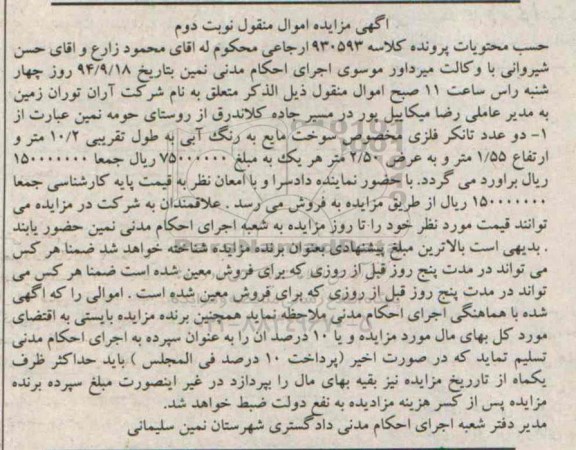 اگهی مزایده اموال منقول نوبت دوم
حسب محتویات پرونده کلاسه ۹۳۰۵۹۳ ارجاعی محکوم له اقای محمود زارع و اقای حسن
شیروانی با وکالت میرداور موسوی اجرای احکام مدنی نمین بتاریخ ۹۴/۹/۱۸ روز چهار
شنبه راس ساعت ۱۱ صبح اموال منقول ذیل الذکر متعلق به نام شرکت آران توران زمین
به مدیر عاملی رضا میکاییل پور در مسیر جاده کلاندرق از روستای حومه نمین عبارت از
۱- دو عدد تانکر فلزی مخصوص سوخت مایع به رنگ آبی به طول تقریبی ۱۰/۲ متر و
ارتفاع ۱/۵۵ متر و به عرض ۲/۵۰ متر هر یک به مبلغ ۷۵۰۰۰۰۰۰ ریال جمعا ۱۵۰۰۰۰۰۰۰
ریال براورد می گردد. با حضور نماینده دادسرا و با امعان نظر به قیمت پایه کارشناسی جمعا
۱۵۰۰۰۰۰۰۰ ریال از طریق مزایده به فروش می رسد . علاقمندان به شرکت در مزایده می
توانند قیمت مورد نظر خود را تا روز مزایده به شعبه اجرای احکام مدنی نمین حضور یابند
. بدیهی است بالاترین مبلغ پیشنهادی بعنوان برنده مزایده شناخته خواهد شد ضمنا هر کس
می تواند در مدت پنج روز قبل از روزی که برای فروش معین شده است ضمنا هر کس می
تواند در مدت پنج روز قبل از روزی که برای فروش معین شده است . اموالی را که اگهی
شده با هماهنگی اجرای احکام مدنی ملاحظه نماید همچنین برنده مزایده بایستی به اقتضای
مورد کل بهای مال مورد مزایده و یا ۱۰ درصد ان را به عنوان سپرده به اجرای احکام مدنی
تسلیم نماید که در صورت اخیر (پرداخت ۱۰ درصد فی المجلس ) باید حداکثر ظرف
یکماه از تارریخ مزایده نیز بقیه بهای مال را بپردازد در غیر اینصورت مبلغ سپرده برنده
مزایده پس از کسر هزینه مزادیده به نفع دولت ضبط خواهد شد.
مدیر دفتر شعبه اجرای احکام مدنی دادگستری شهرستان نمین سلیمانی